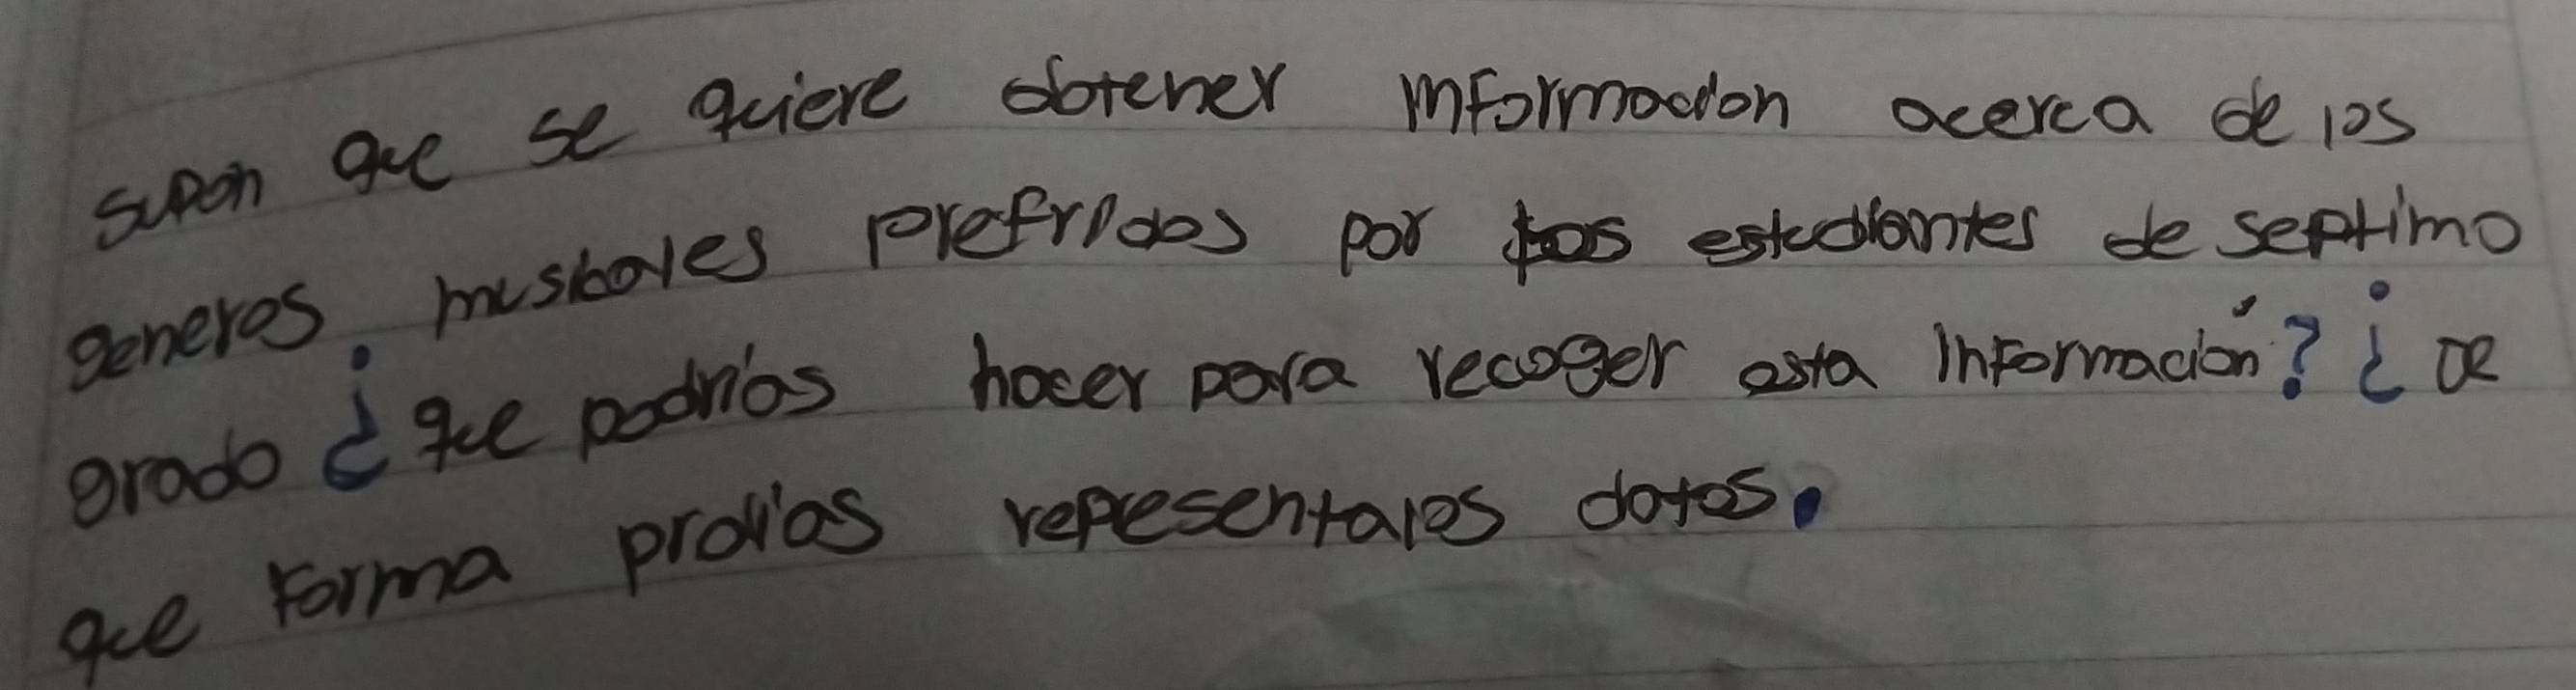 supon que se quiere obtener informacion acerca de los
generos musicales prefridos por los estudiantes de septimo
grado ¿ que podrías hacer para recoger esta información? ¿ De
que forma prodías representalos datos.